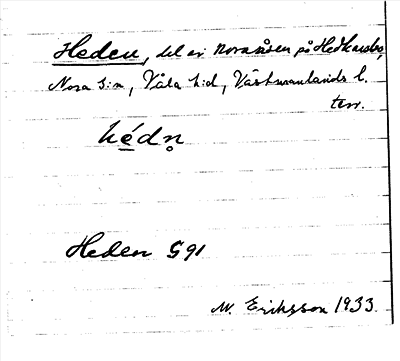 Heden, del av Noraåsen på Hedkarlsbo,
Nora s:n, Våla h:d, Västmanlands l.
terr.
hédn̥
Heden G91
M. Eriksson 1933.